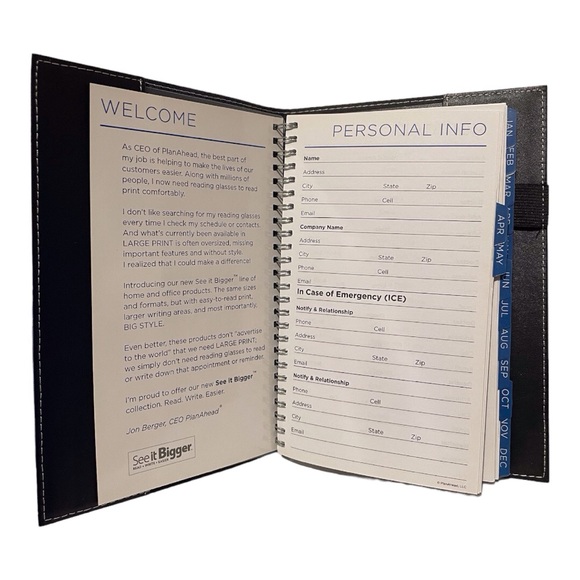 WELCOME
As CEO of PlanAhead, the best part of
my job is helping to make the lives of our
customers easier. Along with millions of
people, I now need reading glasses to read
print comfortably.
I don't like searching for my reading glasses
every time I check my schedule or contacts.
And what's currently been available in
LARGE PRINT is often oversized, missing
important features and without style.
I realized that I could make a difference!
Introducing our new See it Bigger™ line of
home and office products. The same sizes
and formats, but with easy-to-read print,
larger writing areas, and most importantly,
BIG STYLE.
Even better, these products don't "advertise
to the world" that we need LARGE PRINT;
we simply don't need reading glasses to read
or write down that appointment or reminder.
I'm proud to offer our new See it Bigger™
collection. Read. Write. Easier.
Jon Berger, CEO PlanAhead®
See it Bigger
READ • WRITE • EASIER
PERSONAL INFO
Name
Address
City State Zip
Phone Cell
Email
Company Name
Address
City State Zip
Phone Cell
Email
In Case of Emergency (ICE)
Notify & Relationship
Phone Cell
Address
City State Zip
Notify & Relationship
Phone Cell
Address
City State Zip
Email
© PlanAhead, LLC
JAN
FEB
MAR
APR
MAY
JUL
AUG
SEP
OCT
NOV
DEC